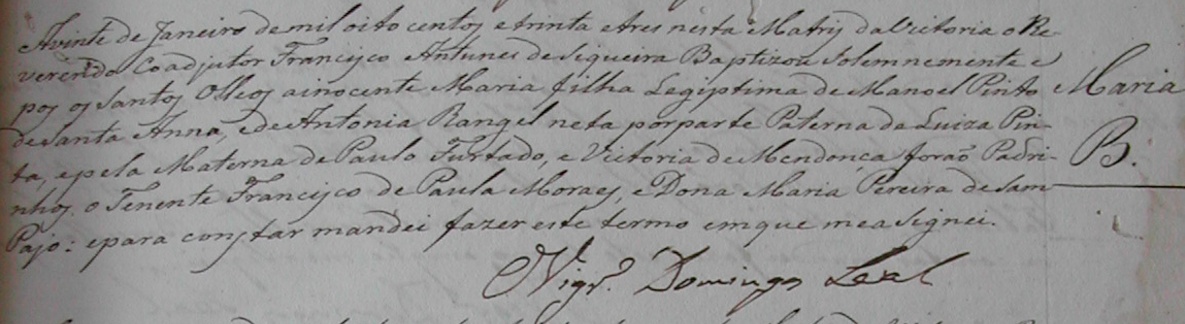 Avinte de Janeiro demil oito centos etrinta etres nesta Matriz da Victoria o Re-
verendo Coadjutor Francisco Antunes de Siqueira Baptizou Solemnemente e
poz os Santos Olleos ainocente Maria filha Legiptima de Manoel Pinto
de Santa Anna, ede Antonia Rangel neta porparte Paterna de Luiza Pin-
ta, epela Materna de Paulo Furtado, e Victoria de Mendonça, forão Padri-
nhos o Tenente Francisco de Paula Moraes, e Dona Maria Pereira de Sam
Pajo: epara constar mandei fazer este termo emque mea Signei.
Maria
B.
O Vigr.º Domingos Leal